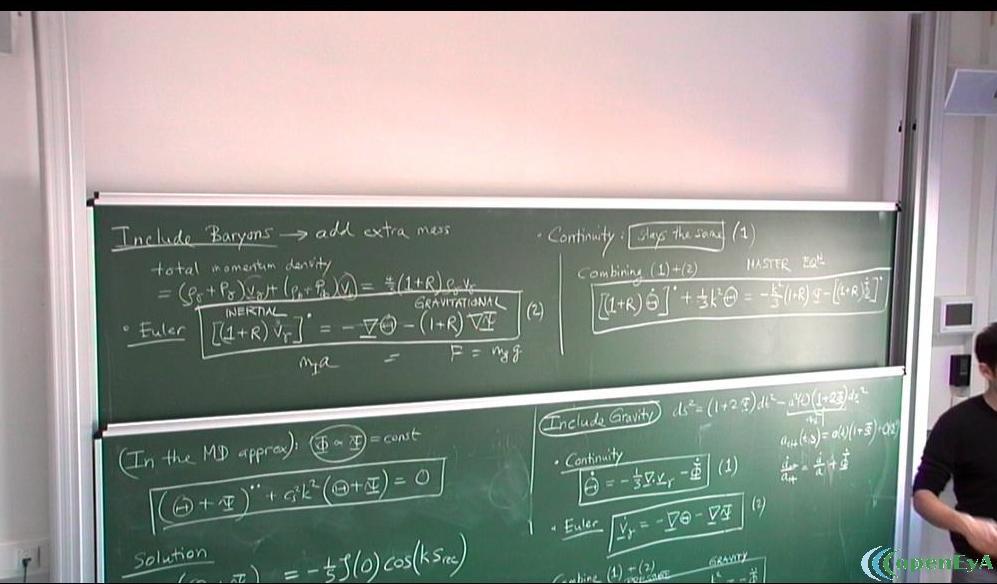 Include Baryons → add extra mass
total momentum density
= (ρ_γ + P_γ) v_γ + (ρ_b + P_b) v_b = 4/3 (1+R) ρ_γ v_γ
INERTIAL GRAVITATIONAL
• Euler [(1+R) v_γ]˙ = -∇Θ - (1+R) ∇Ψ (2)
m_I a = F = m_g g
• Continuity: stays the same (1)
Combining (1)+(2) MASTER EQN
[(1+R) Θ̇]˙ + 1/3 k²Θ = -k²/3 (1+R) Ψ - [(1+R) Φ̇]˙
(In the MD approx): Φ ∝ Ψ = const
(Θ + Ψ)¨ + c_s² k² (Θ + Ψ) = 0
Solution
= -1/5 ζ(0) cos(k s_rec)
Include Gravity ds² = (1+2Ψ)dt² - a²(t)(1+2Φ)dx²
• Continuity
Θ̇ = -1/3 ∇·v_γ - Φ̇ (1)
• Euler v̇_γ = -∇Θ - ∇Ψ (2)
Combine (1) + (2)
GRAVITY
openEyA